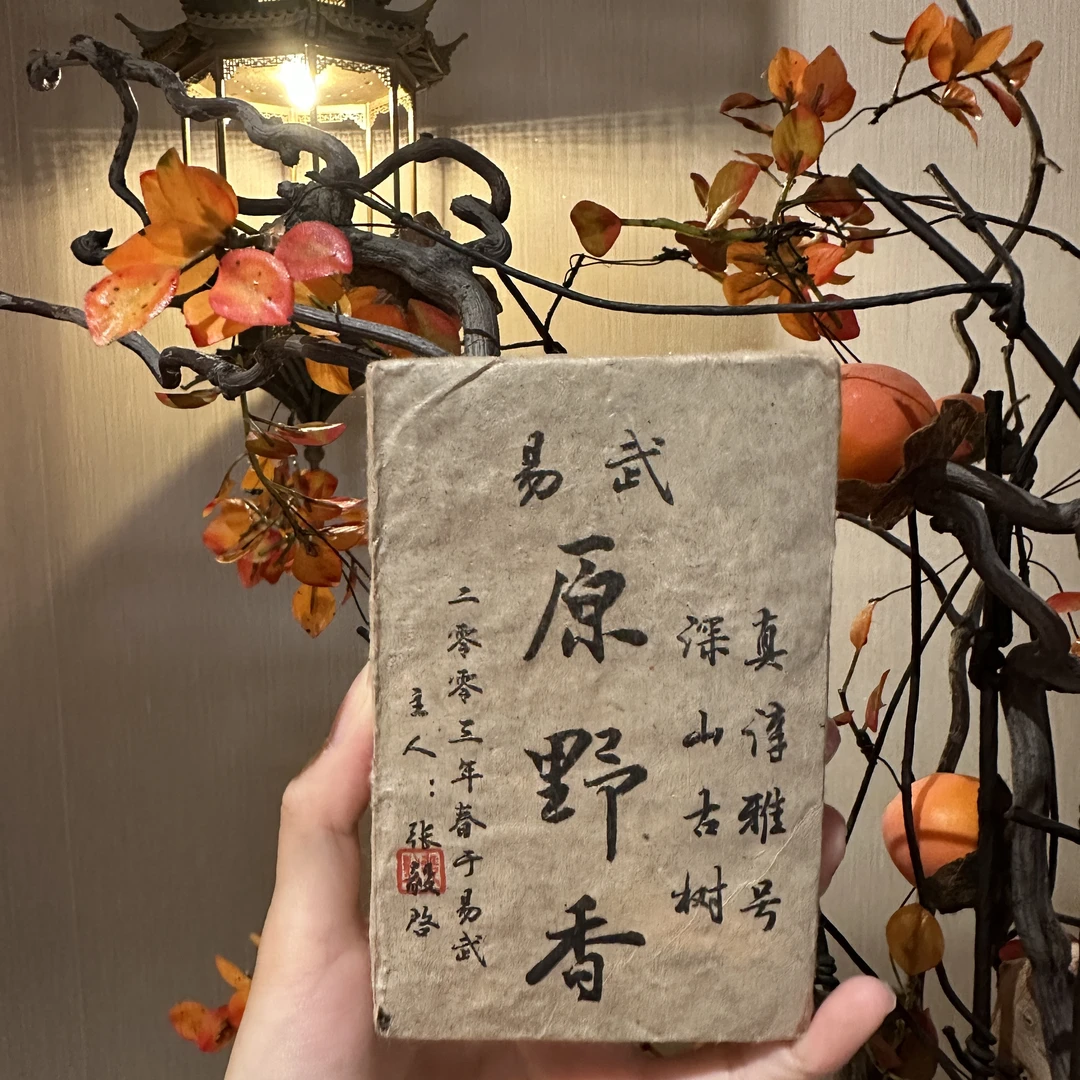 易武
原野香
真淳雅号
深山古树
二零零三年春于易武
主人：张毅启